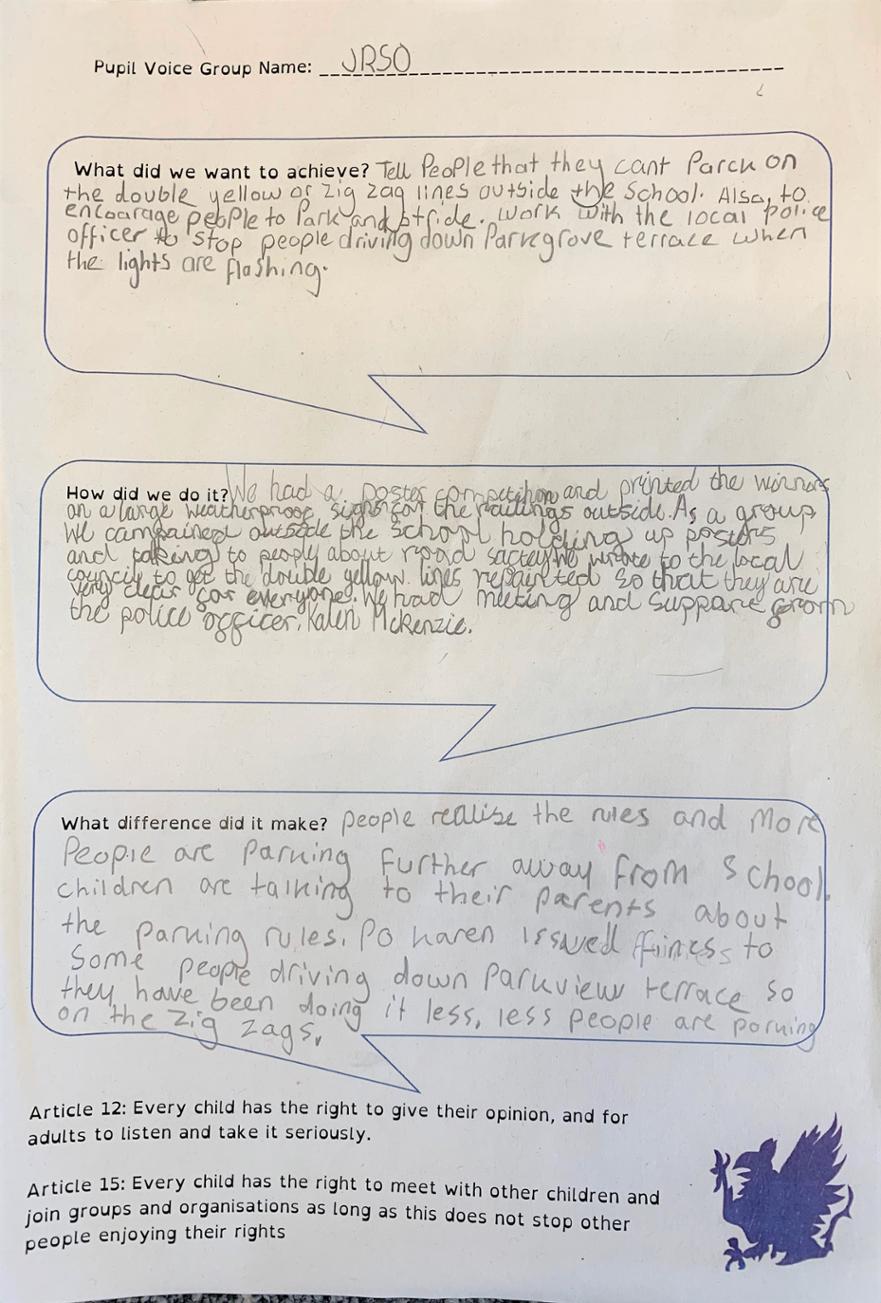 Pupil Voice Group Name: JRSO
What did we want to achieve? Tell People that they cant Parck on
the double yellow or zig zag lines outside the school. Also, to
encoarage people to Park and stride. work with the local police
officer to stop people driving down Parkgrove terrace when
the lights are flashing.
How did we do it? We had a poster competition and printed the winners
on a large weatherproof signs for the railings outside. As a group
we campained outside the school holding up posters
and talking to people about road saftey. We wrote to the local
council to get the double yellow lines repainted so that they are
very clear for everyone. We had meeting and support from
the police officer, Karen Mckenzie.
What difference did it make? people realise the rules and more
People are Parking further away from school.
children are talking to their parents about
the parking rules. Po karen issued finess to
Some people driving down Parkview terrace so
they have been doing it less, less people are parking
on the zig zags.
Article 12: Every child has the right to give their opinion, and for
adults to listen and take it seriously.
Article 15: Every child has the right to meet with other children and
join groups and organisations as long as this does not stop other
people enjoying their rights